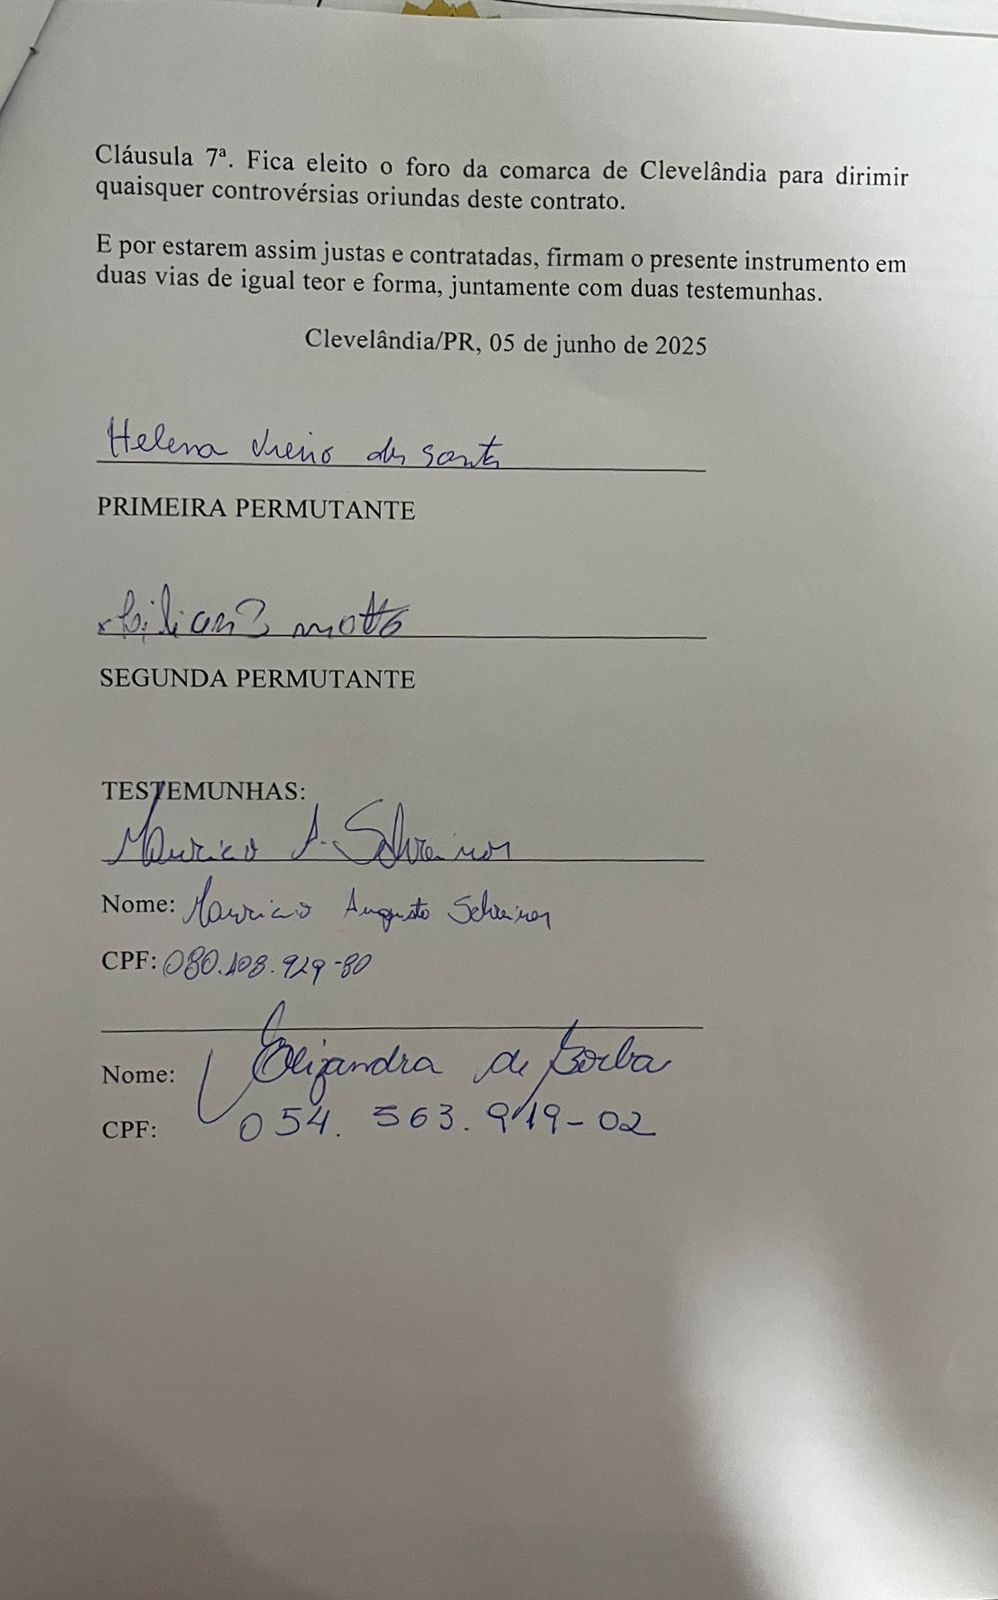 Cláusula 7ª. Fica eleito o foro da comarca de Clevelândia para dirimir
quaisquer controvérsias oriundas deste contrato.
E por estarem assim justas e contratadas, firmam o presente instrumento em
duas vias de igual teor e forma, juntamente com duas testemunhas.
Clevelândia/PR, 05 de junho de 2025
Helena
PRIMEIRA PERMUTANTE
motta
SEGUNDA PERMUTANTE
TESTEMUNHAS:
Mauricio A.
Nome: Mauricio Augusto
CPF: 080.108.929-80
Nome: Elizandra de Borba
CPF: 054. 563. 919-02